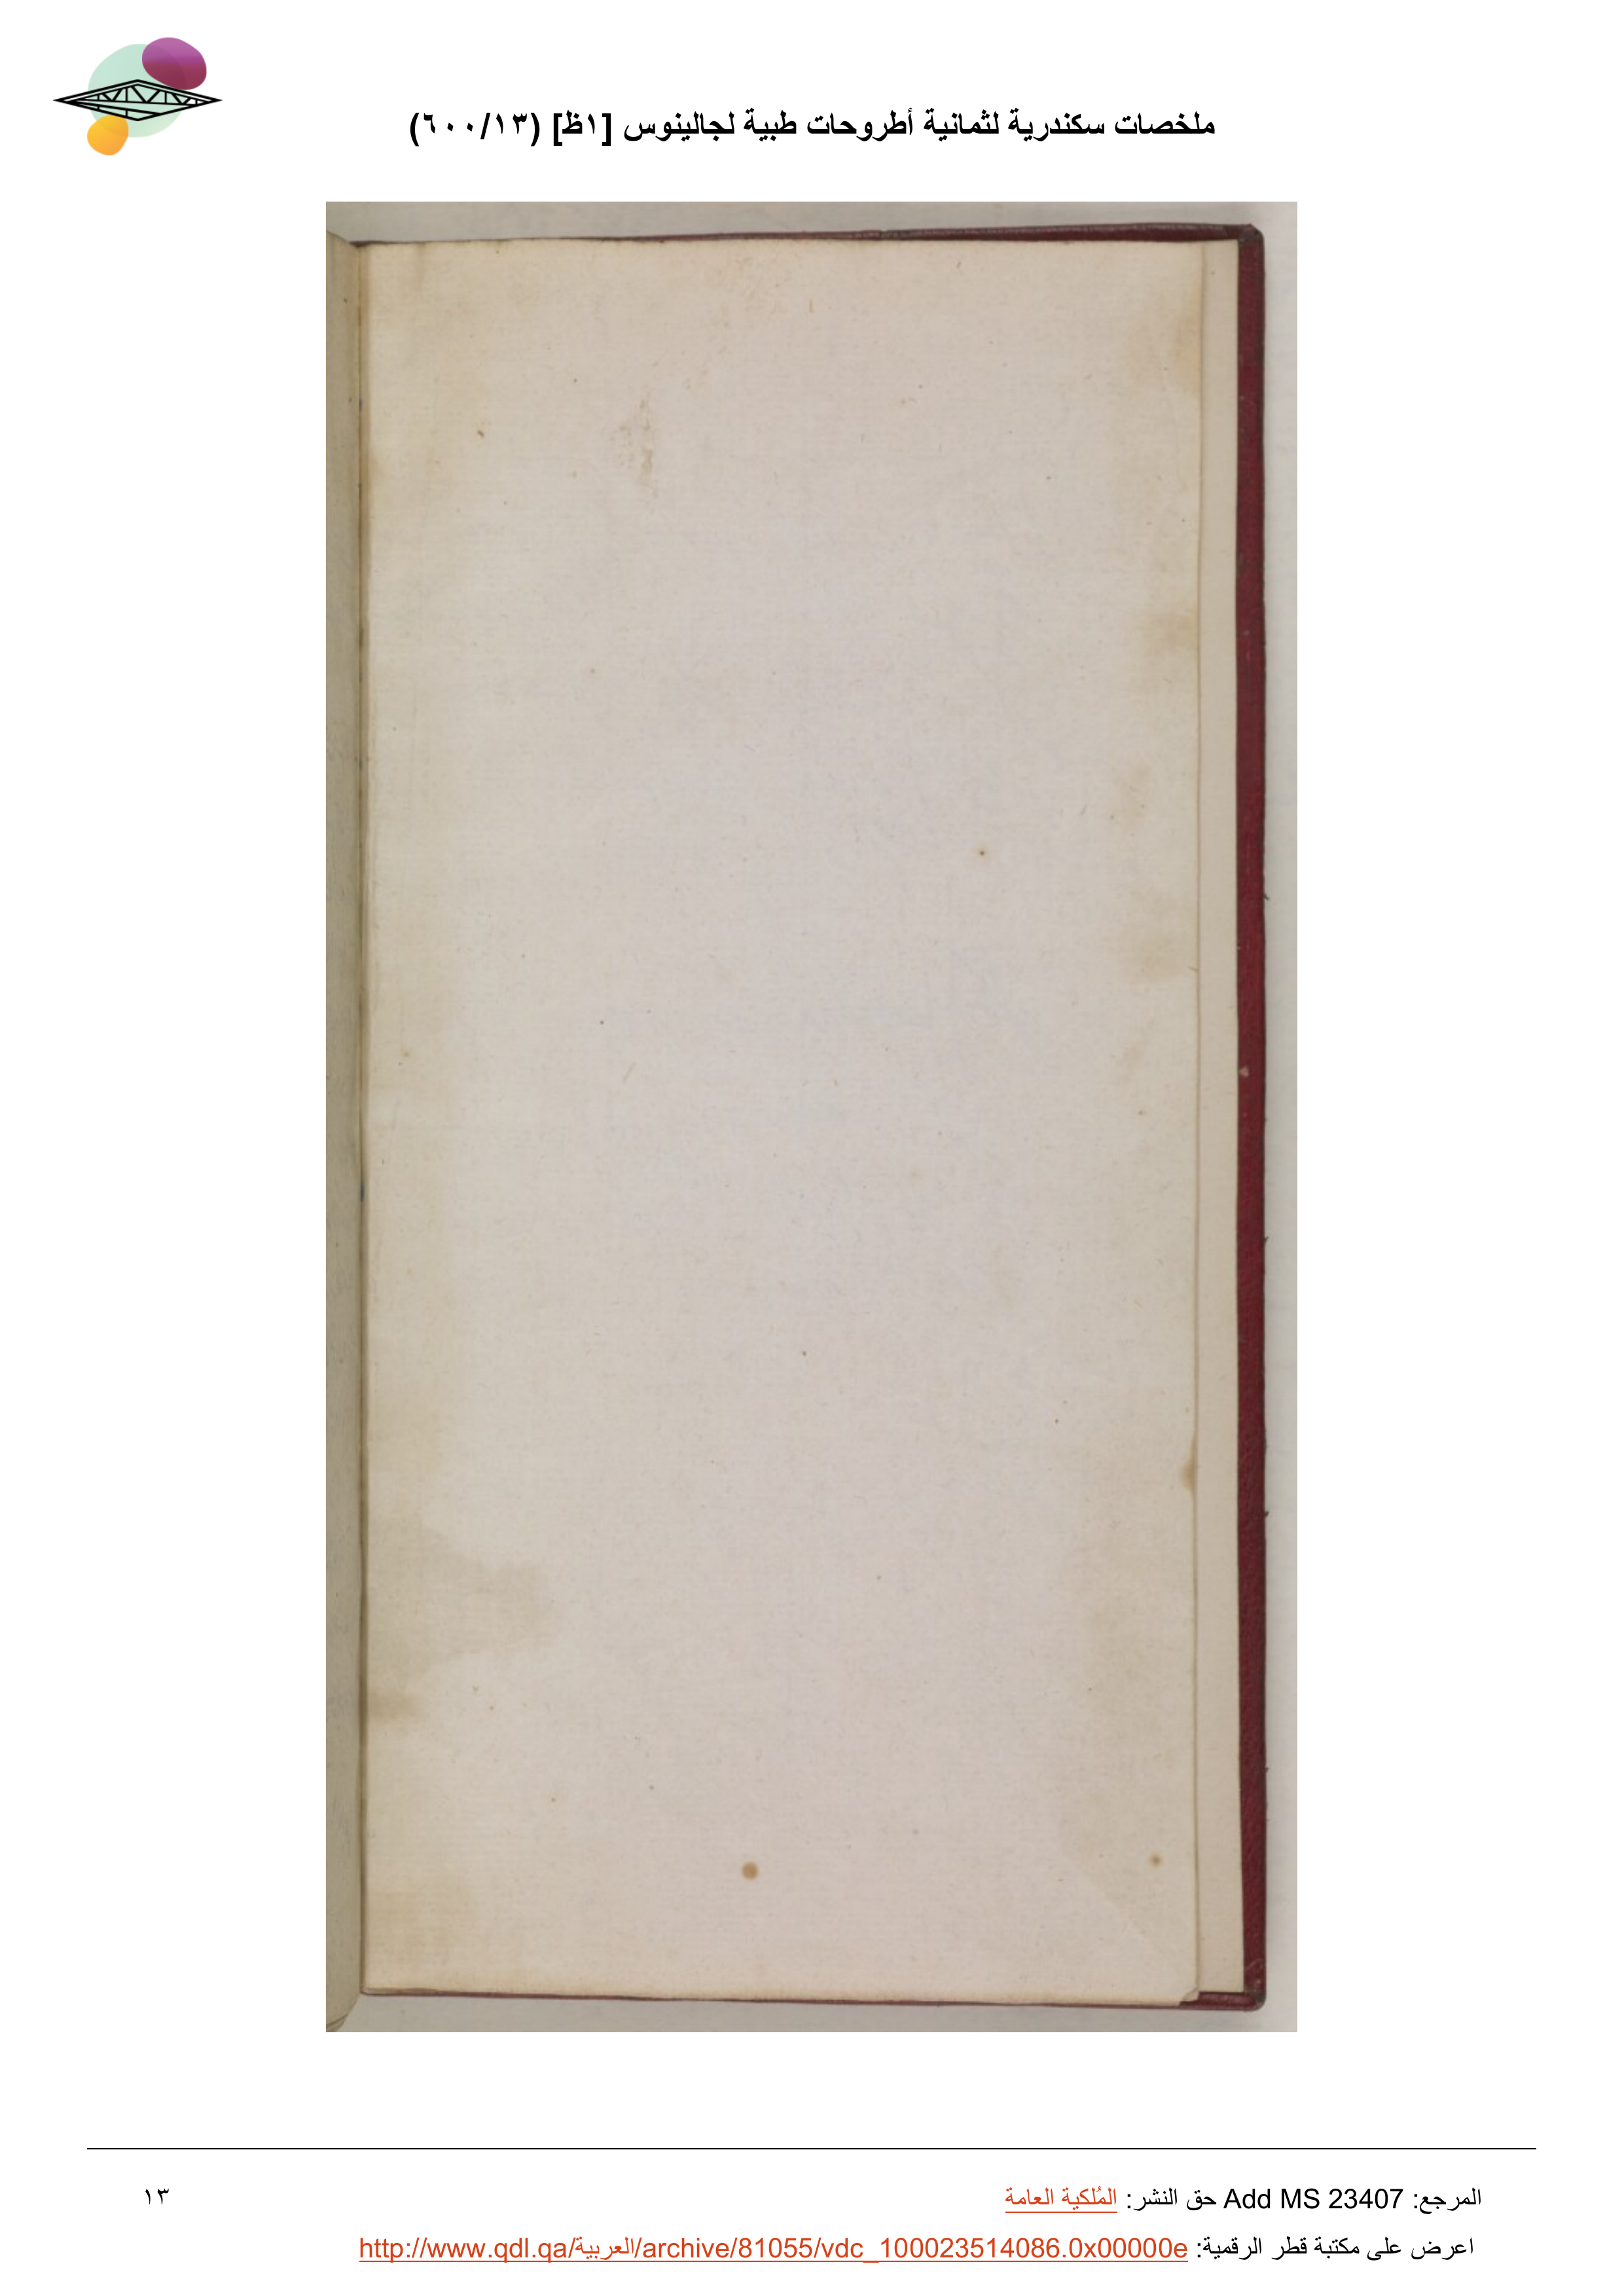 ملخصات سكندرية لثمانية أطروحات طبية لجالينوس [١ظ] (٦٠٠/١٣)
المرجع: Add MS 23407 حق النشر: المُلكية العامة
١٣
اعرض على مكتبة قطر الرقمية: http://www.qdl.qa/العربية/archive/81055/vdc_100023514086.0x00000e